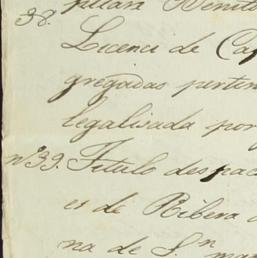 pitan Benito
38. Licencia de Cap
gregadas perten
legalisada por
nº 39. Titulo despac
es de Ribera
na de S.n mar